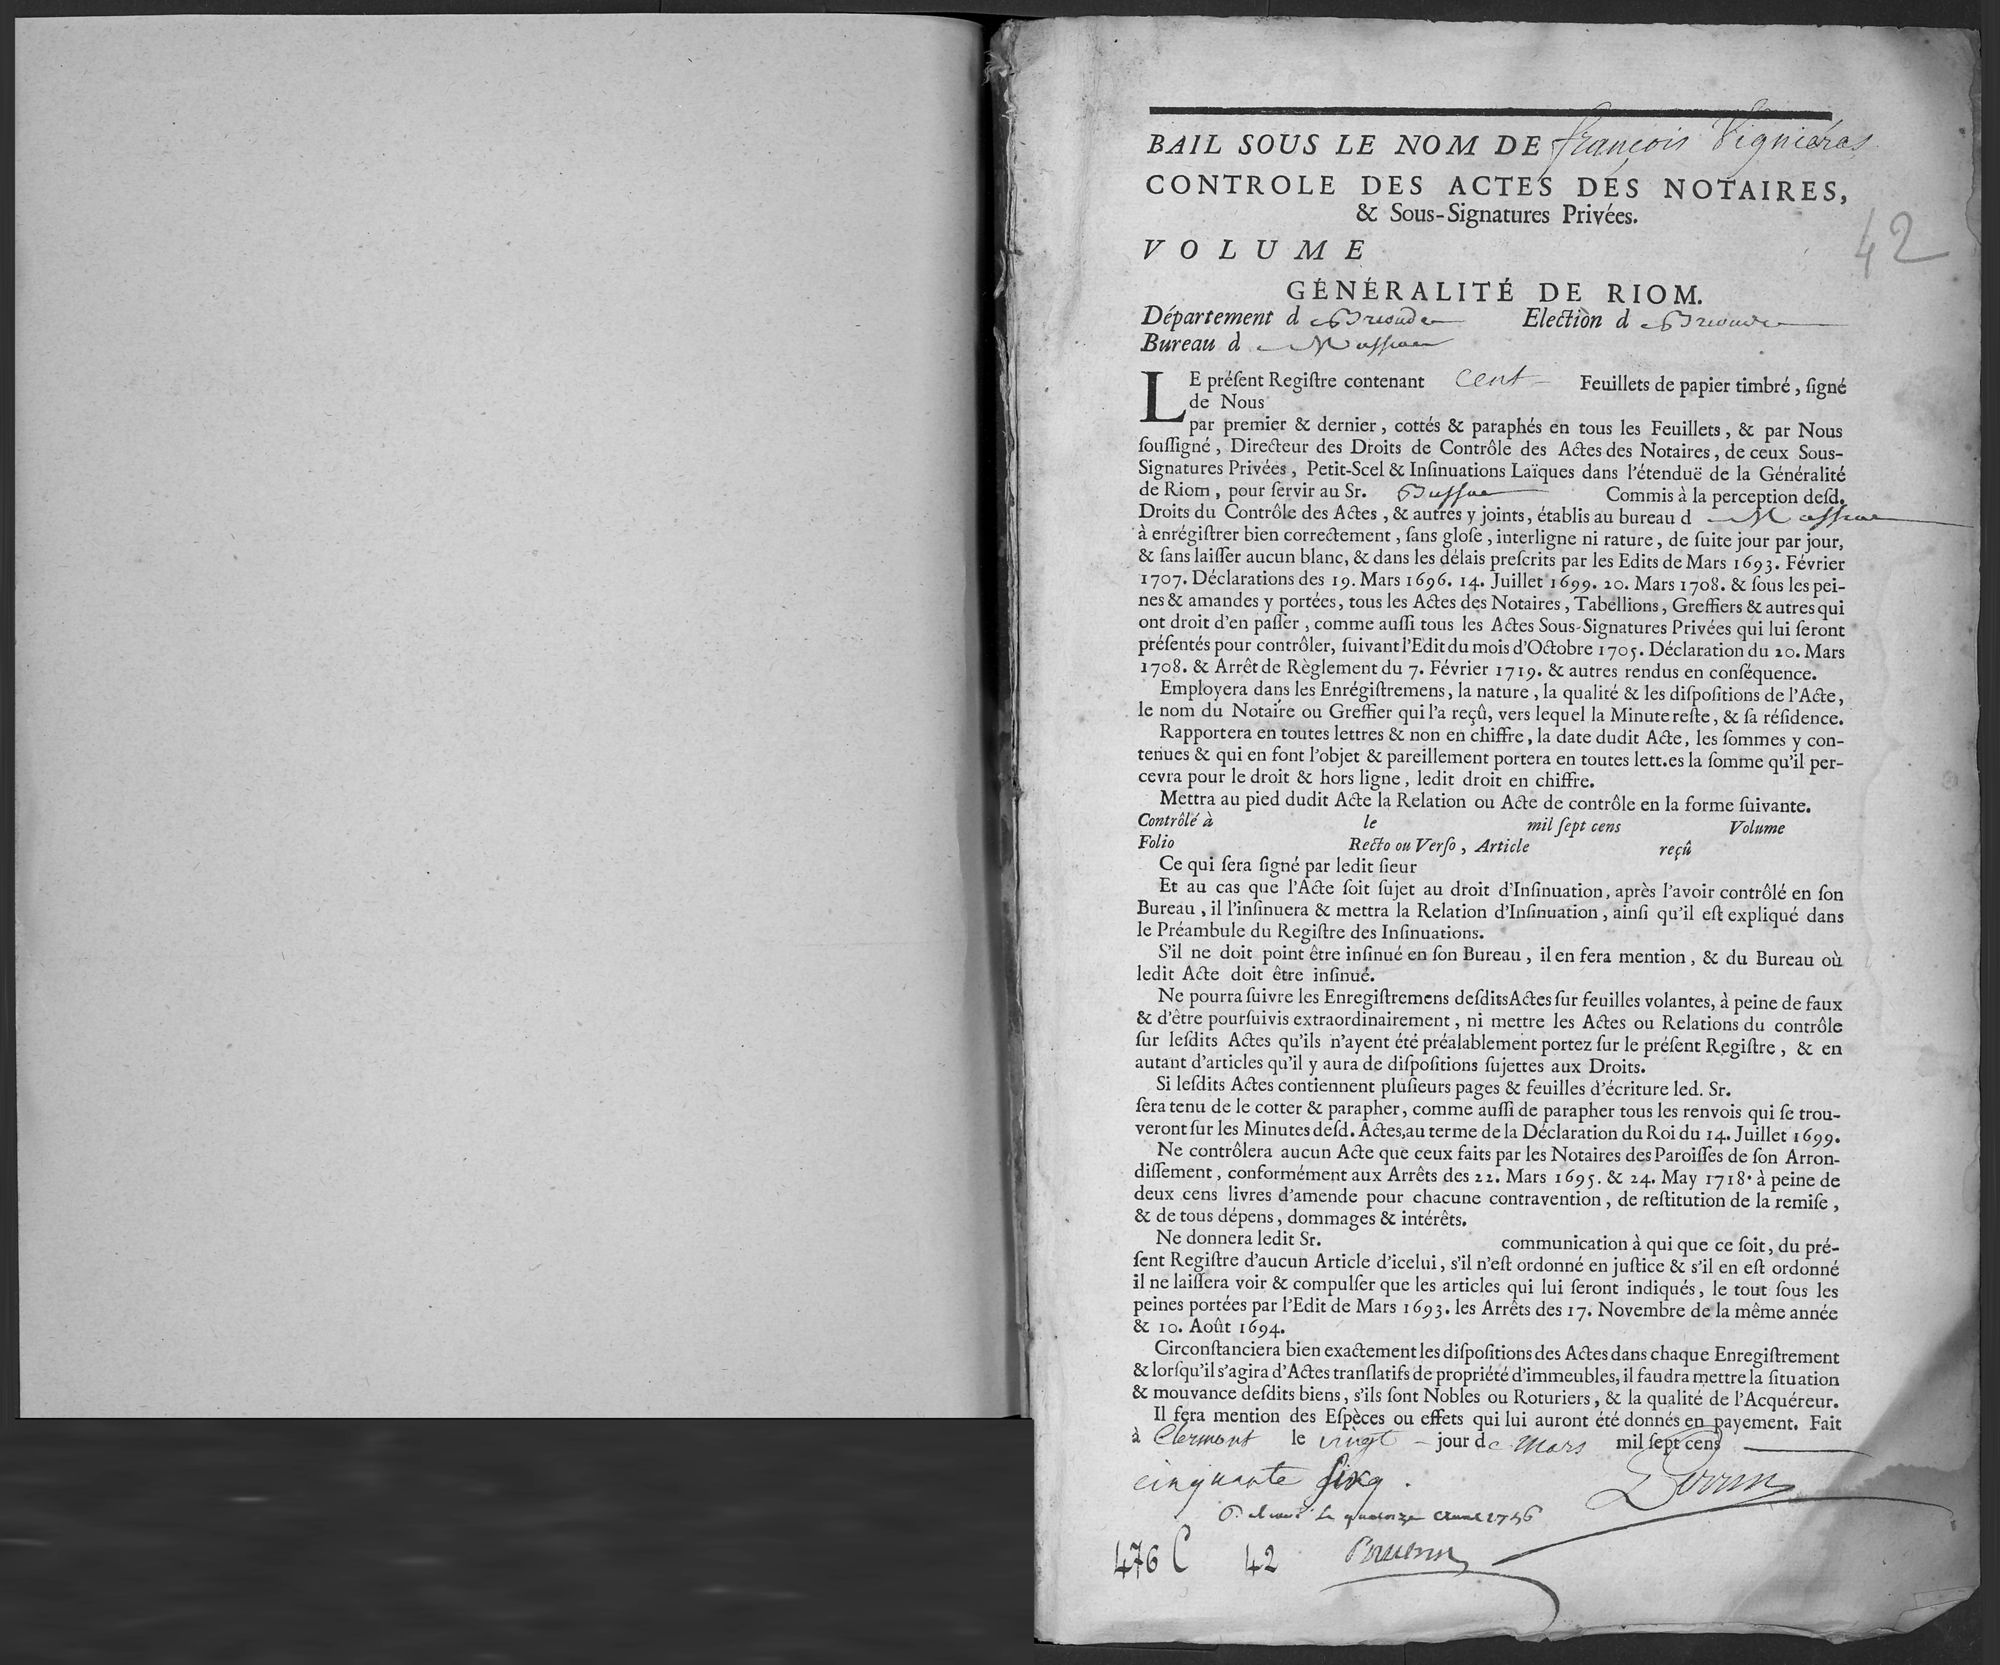 BAIL SOUS LE NOM DE françois Vigniéras
CONTROLE DES ACTES DES NOTAIRES,
& Sous-Signatures Privées.
42
VOLUME
GÉNÉRALITÉ DE RIOM.
Département d Brioude Election d Brioude
Bureau d Massiac
LE préſent Regiſtre contenant cent Feuillets de papier timbré, ſigné
de Nous
par premier & dernier, cottés & paraphés en tous les Feuillets, & par Nous
ſouſſigné, Directeur des Droits de Contrôle des Actes des Notaires, de ceux Sous-
Signatures Privées, Petit-Scel & Inſinuations Laïques dans l'étenduë de la Généralité
de Riom, pour ſervir au Sr. Commis à la perception deſd.
Droits du Contrôle des Actes, & autres y joints, établis au bureau d Massiac
à enrégiſtrer bien correctement, ſans gloſe, interligne ni rature, de ſuite jour par jour,
& ſans laiſſer aucun blanc, & dans les délais preſcrits par les Edits de Mars 1693. Février
1707. Déclarations des 19. Mars 1696. 14. Juillet 1699. 20. Mars 1708. & ſous les pei-
nes & amandes y portées, tous les Actes des Notaires, Tabellions, Greffiers & autres qui
ont droit d'en paſſer, comme auſſi tous les Actes Sous-Signatures Privées qui lui ſeront
préſentés pour contrôler, ſuivant l'Edit du mois d'Octobre 1705. Déclaration du 20. Mars
1708. & Arrêt de Règlement du 7. Février 1719. & autres rendus en conſéquence.
Employera dans les Enrégiſtremens, la nature, la qualité & les diſpoſitions de l'Acte,
le nom du Notaire ou Greffier qui l'a reçû, vers lequel la Minute reſte, & ſa réſidence.
Rapportera en toutes lettres & non en chiffre, la date dudit Acte, les ſommes y con-
tenues & qui en font l'objet & pareillement portera en toutes lett.es la ſomme qu'il per-
cevra pour le droit & hors ligne, ledit droit en chiffre.
Mettra au pied dudit Acte la Relation ou Acte de contrôle en la forme ſuivante.
Contrôlé à le mil ſept cens Volume
Folio Recto ou Verſo, Article reçû
Ce qui ſera ſigné par ledit ſieur
Et au cas que l'Acte ſoit ſujet au droit d'Inſinuation, après l'avoir contrôlé en ſon
Bureau, il l'inſinuera & mettra la Relation d'Inſinuation, ainſi qu'il eſt expliqué dans
le Préambule du Regiſtre des Inſinuations.
S'il ne doit point être inſinué en ſon Bureau, il en fera mention, & du Bureau où
ledit Acte doit être inſinué.
Ne pourra ſuivre les Enregiſtremens deſdits Actes ſur feuilles volantes, à peine de faux
& d'être pourſuivis extraordinairement, ni mettre les Actes ou Relations du contrôle
ſur leſdits Actes qu'ils n'ayent été préalablement portez ſur le préſent Regiſtre, & en
autant d'articles qu'il y aura de diſpoſitions ſujettes aux Droits.
Si leſdits Actes contiennent pluſieurs pages & feuilles d'écriture led. Sr.
ſera tenu de le cotter & parapher, comme auſſi de parapher tous les renvois qui ſe trou-
veront ſur les Minutes deſd. Actes, au terme de la Déclaration du Roi du 14. Juillet 1699.
Ne contrôlera aucun Acte que ceux faits par les Notaires des Paroiſſes de ſon Arron-
diſſement, conformément aux Arrêts des 22. Mars 1695. & 24. May 1718. à peine de
deux cens livres d'amende pour chacune contravention, de reſtitution de la remiſe,
& de tous dépens, dommages & intérêts.
Ne donnera ledit Sr. communication à qui que ce ſoit, du pré-
ſent Regiſtre d'aucun Article d'icelui, s'il n'eſt ordonné en juſtice & s'il en eſt ordonné
il ne laiſſera voir & compulſer que les articles qui lui ſeront indiqués, le tout ſous les
peines portées par l'Edit de Mars 1693. les Arrêts des 17. Novembre de la même année
& 10. Août 1694.
Circonſtanciera bien exactement les diſpoſitions des Actes dans chaque Enregiſtrement
& lorſqu'il s'agira d'Actes tranſlatifs de propriété d'immeubles, il faudra mettre la ſituation
& mouvance deſdits biens, s'ils ſont Nobles ou Roturiers, & la qualité de l'Acquéreur.
Il fera mention des Eſpèces ou effets qui lui auront été donnés en payement. Fait
à Clermont le vingt jour de mars mil ſept cens
cinquante six
le quatorze 1756
476 C 42